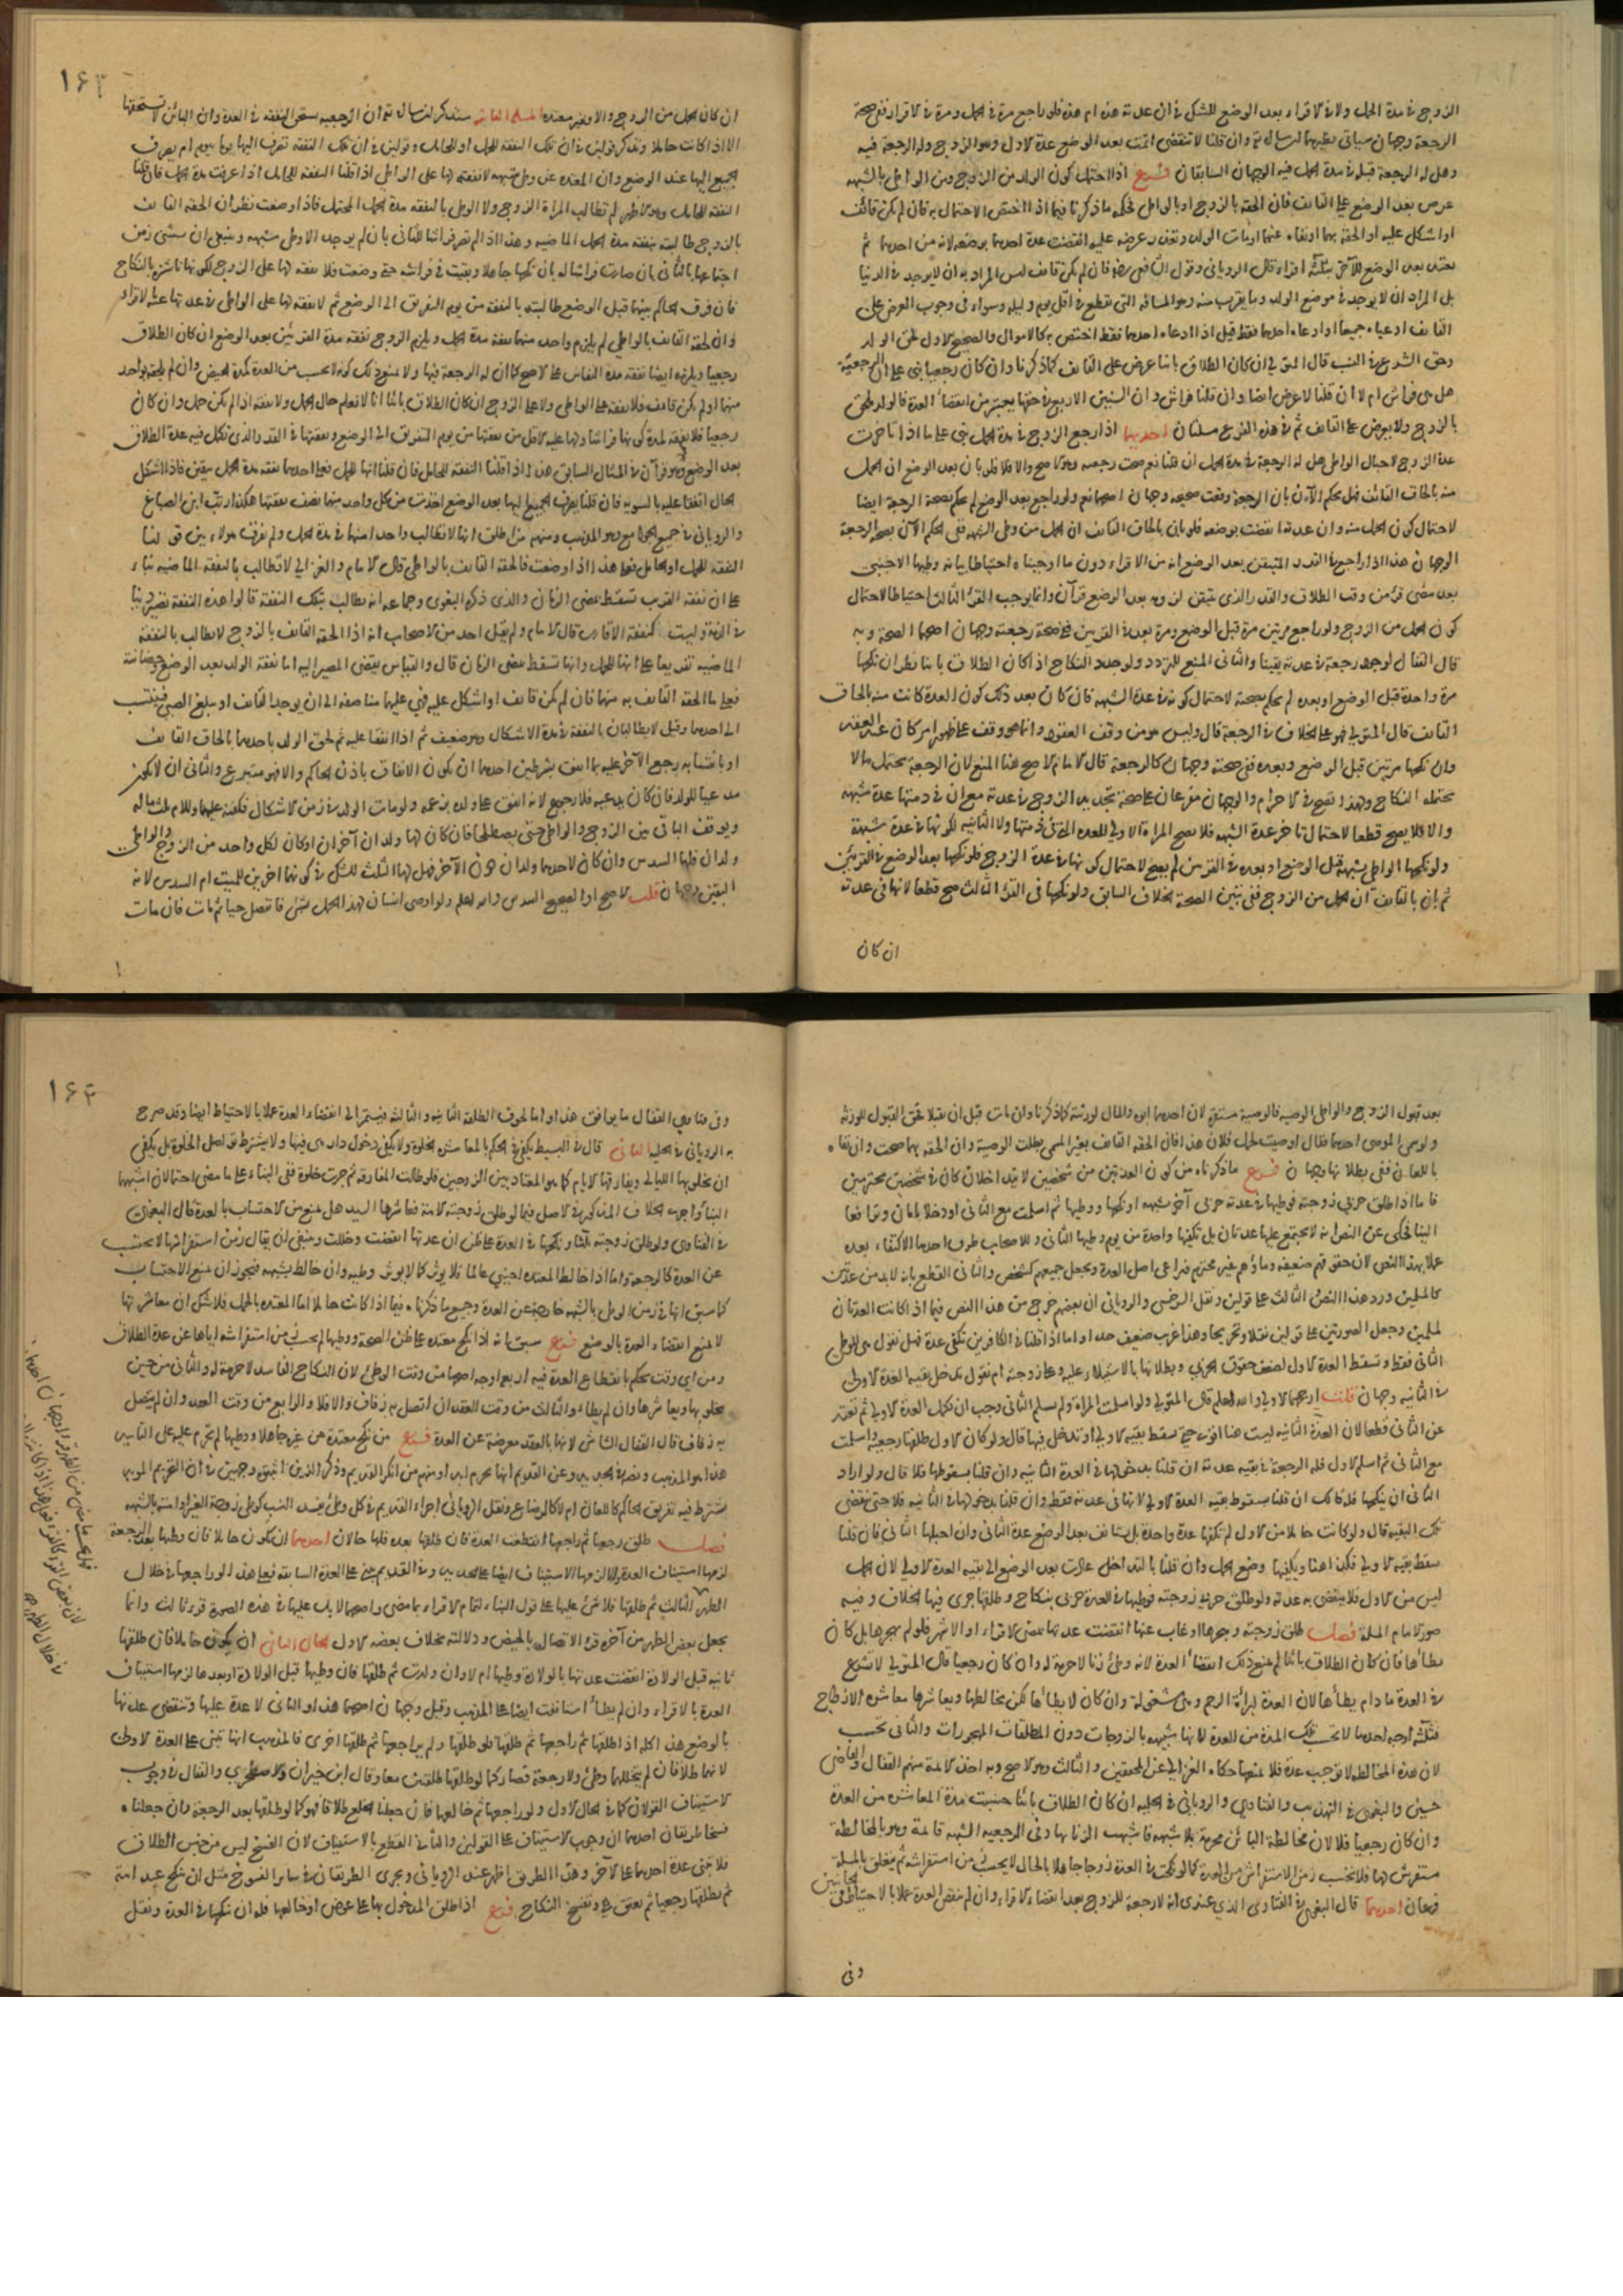 الزوج في مدة الحمل ولا في الاقراء بعد الوضع للشك في ان عدته هذه ام هذه فلو راجع مرة في الحمل ومرة في الاقراء ففي صحة
الرجعة وجهان سياتي نظيرهما ان شاء الله تعالى وان قلنا لا تنقضي اتمت بعد الوضع عدة الاول وهو الزوج وله الرجعة فيه
وهل له الرجعة قبله في مدة الحمل فيه الوجهان السابقان فرع اذا احتمل كون الولد من الزوج ومن الواطي بالشبهه
عرض بعد الوضع على القايف فان الحقه بالزوج او بالواطي فحكمه ما ذكرنا فيما اذا اختص الاحتمال به فان لم يكن قائف
او اشكل عليه او الحقه بهما او نفاه عنهما او مات الولد وتعذر عرضه عليه انقضت عدة احدهما بوضعه لانه من احدهما ثم
تعتد بعد الوضع للآخر بثلثة اقراء قال الروياني وقول الشافعي رضه فان لم يكن قايف ليس المراد به ان لا يوجد في الدنيا
بل المراد ان لا يوجد في موضع الولد وما يقرب منه وهو المسافه التي تقطع في اقل يوم وليله وسواء في وجوب العرض على
القايف ادعياه جميعا او ادعاه احدهما فقط وقيل اذا ادعاه احدهما فقط اختص به كالاموال والصحيح الاول لحق الولد
وحق الشرع في النسب قال المتولي ان كان الطلاق باينا عرض على القايف كما ذكرنا وان كان رجعيا بني على ان الرجعية
هل هي فراش ام لا ان قلنا لا عرض ايضا وان قلنا فراش وان السنين الاربع في حقها يعتبر من انقضاء العدة فالولد ملحق
بالزوج ولا يعرض على القايف ثم في هذه الفرع مسئلتان احديهما اذا راجع الزوج في مدة الحمل بني على ما اذا تاخرت
عدة الزوج لاحبال الواطي هل له الرجعة في مدة الحمل ان قلنا نعم صحت رجعته وهو الاصح والا فلا فلو بان بعد الوضع ان الحمل
منه بالحاق القائف فهل يحكم الآن بان الرجعة وقعت صحيحه وجهان اصحهما نعم ولو راجع بعد الوضع لم يحكم بصحة الرجعة ايضا
لاحتمال كون الحمل منه وان عدته انقضت بوضعه فلو بان بالحاق القايف ان الحمل من وطي الشبهه ففي الحكم الآن بصحة الرجعة
الوجهان هذا اذا راجع في القدر المتيقن بعد الوضع انه من الاقراء دون ما اوجبناه احتياطا بيانه وطيها الاجنبي
بعد مضي قرء من وقت الطلاق والقدر الذي يتيقن لزومه بعد الوضع قرآن وانما يوجب القرء الثالث احتياطا لاحتمال
كون الحمل من الزوج ولو راجع مرتين مرة قبل الوضع ومرة بعده في القدرين ففي صحة رجعته وجهان اصحهما الصحة وبه
قال القفال لوجود رجعة في عدته يقينا والثاني المنع للتردد ولو جدد النكاح اذا كان الطلاق باينا نظر ان نكحها
مرة واحدة قبل الوضع او بعده لم يحكم بصحته لاحتمال كونه في عدة الشبهه فان كان بعد ذلك كون العدة كانت منه بالحاق
القايف قال المتولي فهو على الخلاف في الرجعة قال وليس هو من وقف العقود وانما هو وقف على ظهور امر كان عند العقد
وان نكحها مرتين قبل الوضع وبعده ففي صحته وجهان كالرجعة قال الامام الاصح هنا المنع لان الرجعة تحتمل ما لا
يحتمله النكاح ولهذا تصح في الاحرام والوجهان مفرعان على صحة تجديد الزوج في عدته مع ان في ذمتها عدة شبهه
والا فلا يصح قطعا لاحتمال تاخر عدة الشبهه فلا يصح المراة الاولى للعدة الاخرى في ذمتها ولا الثانيه لكونها في عدة شبهة
ولو نكحها الواطي بشبهة قبل الوضع او بعده في القرئين لم يصح لاحتمال كونها في عدة الزوج فلو نكحها بعد الوضع في القرئين
ثم بان بالقايف ان الحمل من الزوج ففي تبين الصحة الخلاف السابق ولو نكحها في القرء الثالث صح قطعا لانها في عدته
ان كان
١٦٣
ان كان الحمل من الزوج والا وغير معتدة المسئلة الثانيه سنذكر ان شاء الله تعالى ان الرجعيه تستحق النفقه في العدة وان البائن لا تستحقها
الا اذا كانت حاملا ونذكر قولين في ان تلك النفقه للحمل او للحامل وقولين في ان تلك النفقه تصرف اليها يوما بيوم ام يصرف
الجميع اليها عند الوضع وان المعتده عن وطي شبهه لا نفقة لها على الواطي اذا قلنا النفقه للحامل اذا عرفت هذا فان قلنا
النفقه للحامل وهو الاظهر لم تطالب المراة الزوج ولا الواطي بالنفقه مدة الحمل المحتمل فاذا وضعت نظر ان الحقه القايف
بالزوج طالبته بنفقه مدة الحمل الماضيه وهذا اذا لم تصر فراشا للثاني بان لم يوجد الا وطي شبهه وينبغي ان يستثنى زمن
اجتماعها بالثاني فان صارت فراشا له بان نكحها جاهلا وبقيت في فراشه حتى وضعت فلا نفقه لها على الزوج لكونها ناشزة بالنكاح
فان فرق الحاكم بينهما قبل الوضع طالبته بالنفقه من يوم التفريق الى الوضع ثم لا نفقه لها على الواطي في عدتها عنه بالاقراء
وان الحقه القايف بالواطي لم يلزم واحد منهما نفقه مدة الحمل ويلزم الزوج نفقه مدة القرئين بعد الوضع ان كان الطلاق
رجعيا ويلزمه ايضا نفقه مدة النفاس على الاصح كما ان له الرجعة فيها ولا يمنع ذلك كونه لا يحسب من العدة كمدة الحيض وان لم يلحقه بواحد
منهما او لم يكن قايف فلا نفقه على الواطي ولا على الزوج ان كان الطلاق بائنا لانا لا نعلم حال الحمل ولا نفقه اذا لم يكن حمل وان كان
رجعيا فلا نفقه لمدة كونها فراشا ولها عليه الاقل من نفقتها من يوم التفريق الى الوضع ونفقتها في القدر الذي تكمل فيه عدة الطلاق
بعد الوضع وهو قرآن في المثال السابق هذا اذا قلنا النفقه للحامل فان قلنا انها للحمل فعلى احدهما نفقه مدة الحمل بيقين فاذا اشكل
الحال انفقا عليه بالسويه فان قلنا يصرف الجميع اليها بعد الوضع اخذت من كل واحد منهما نصف نفقتها هكذا رتب ابن الصباغ
والروياني في جميع الجوامع وهو المذهب ومنهم من اطلق انها لا تطالب واحدا منهما في مدة الحمل ولم يفرق هولاء بين قولنا
النفقه للحمل او للحامل فعلى هذا اذا وضعت فالحقه القايف بالواطي قال الامام والغزالي لا تطالب بالنفقه الماضيه بناء
على ان نفقه القريب تسقط بمضي الزمان والذي ذكره البغوي وجماعه انه يطالب بتلك النفقه قالوا هذه النفقه تصير دينا
في الذمة وليست كنفقة الاقارب قال الامام ولم يقل احد من الاصحاب انه اذا الحقه القايف بالزوج لا يطالب بالنفقة
الماضيه تفريعا على انها للحمل وانها تسقط بمضي الزمان قال والقياس يقتضي المصير اليه اما نفقة الولد بعد الوضع وحضانته
فعلى ما الحقه القايف به منهما فان لم يكن قايف او اشكل عليه فهي عليهما مناصفة الى ان يوجد القايف او يبلغ الصبي فينتسب
الى احدهما وقيل لا يطالبان بالنفقة في مدة الاشكال وهو ضعيف ثم اذا انفقا عليه ثم لحق الولد باحدهما بالحاق القايف
او بانتسابه رجع الآخر عليه بما انفق بشرطين احدهما ان يكون الانفاق باذن الحاكم والا فهو متبرع والثاني ان لا يكون
مدعيا للولد فان كان يدعيه فلا رجوع لانه انفق على ولده بزعمه ولو مات الولد في زمن الاشكال فكفنه عليهما وللام ثلث ماله
ويوقف الباقي بين الزوج والواطي حتى يصطلحا فان كان لها ولدان آخران او كان لكل واحد من الزوج والواطي
ولدان فلها السدس وان كان لاحدهما ولدان دون الآخر فهل لها الثلث للشك في كونهما اخوين للميت ام السدس لانه
اليقين وجهان قلت الاصح او الصحيح السدس والله اعلم ولو اوصى انسان لهذا الحمل بشئ فانفصل حيا ثم مات فان مات
بعد قبول الزوج والواطي الوصيه فالوصية مستقرة لان احدهما ابوه والمال لورثته كما ذكرنا وان مات قبل ان يقبلا فحق القبول للورثه
ولو سمى الموصي احدهما فقال اوصيت لحمل فلان هذا فان الحقه القايف بغير المسمى بطلت الوصية وان الحقه به صحت وان نفاه
باللعان ففي بطلانها وجهان فرع ما ذكرناه من كون العدتين من شخصين لا يتداخلان كان في شخصين محترمين
فاما اذا طلق حربي زوجته فوطيها في عدته حربي آخر بشبهه او نكحها ووطيها ثم اسلمت مع الثاني او دخلا بامان وترافعا
الينا فحكي عن النص انه لا يجتمع عليها عدتان بل تكفيها واحدة من يوم وطيها الثاني وللاصحاب طرق احدها الاكتفاء بعده
عملا بهذا النص لان حقوقهم ضعيفه وماؤهم غير محترم فيراعى اصل العدة ويجعل جميعهم كشخص والثاني القطع بانه لا بد من عدتين
كالمسلمين ورد هذا النص الثالث على قولين ونقل السرخسي والروياني ان بعضهم خرج من هذا النص فيما اذا كانت العدتان
لمسلمين وجعل الصورتين على قولين نقلا وتخريجا وهذا غريب ضعيف جدا واما اذا قلنا في الكافرين تكفي عدة فهل نقول هي للوطء
الثاني فقط وتسقط العدة الاول لضعف حقوق الحربي وبطلانها بالاستيلاء عليه وعلى زوجته ام نقول تدخل بقية العدة الاولى
في الثانيه وجهان قلت ارجحهما الاول والله اعلم قال المتولي ولو اسلمت المراة ولم يسلم الثاني وجب ان تكمل العدة الاولى ثم تعتد
عن الثاني قطعا لان العدة الثانيه ليست هنا اقوى حتى تسقط بقيه الاولى او تدخل فيها قال ولو كان الاول طلقها رجعيه واسلمت
مع الثاني ثم اسلم الاول فله الرجعة في بقيه عدته ان قلنا بدخولها في العدة الثانيه وان قلنا بسقوطها فلا قال ولو اراد
الثاني ان ينكحها فله ذلك ان قلنا بسقوط بقيه العدة الاولى لانها في عدته فقط وان قلنا بدخولها في الثانيه فلا حتى تنقضي
تلك البقيه قال ولو كانت حاملا من الاول لم تكفها عدة واحدة بل تستانف بعد الوضع عدة الثاني وان احبلها الثاني فان قلنا
تسقط بقيه الاولى فكذا هنا ويكفيها وضع الحمل وان قلنا بالتداخل عادت بعد الوضع الى بقيه العدة الاولى لان الحمل
ليس من الاول فلا ينقضي به عدته ولو طلق حربي زوجته فوطيها في العدة حربي بنكاح وطلقها جرى فيها الخلاف وفيه
صور الامام المسئلة فصل طلق زوجته وهجرها او غاب عنها انقضت عدتها بمضي الاقراء او الاشهر فلو لم يهجرها بل كان
يطأها فان كان الطلاق بائنا لم يمنع ذلك انقضاء العدة لانه وطي زنا لا حرمة له وان كان رجعيا قال المتولي لا تشرع
في العدة ما دام يطأها لان العدة لبراءة الرحم وهي مشغولة وان كان لا يطأها لكن يخالطها ويعاشرها معاشرة الازواج
فثلثة اوجه احدها لا تحسب تلك المدة من العدة لانها شبيهه بالزوجات دون المطلقات المهجورات والثاني تحسب
لان هذه المخالطه لا توجب عدة فلا تمنعها حكاه الغزالي عن المحققين والثالث وهو الاصح وبه اخذ الائمة منهم القفال والقاضي
حسين والبغوي في التهذيب والفتاوي والروياني في الحليه ان كان الطلاق بائنا حسبت مدة المعاشرة من العدة
وان كان رجعيا فلا لان مخالطة البائن محرمة بلا شبهه فاشبهت الزنا بها وفي الرجعيه الشبهه قائمة وهو بالمخالطة
مستفرش لها فلا تحسب زمن الاستفراش من العدة كما لو نكحت في العدة زوجا جاهلا بالحال لا يحسب زمن استفراشه ثم يتعلق بالمسئله
فرعان احدهما قال البغوي في الفتاوى الذي عندي انه لا رجعة للزوج بعد انقضاء الاقراء وان لم تنقض العدة عملا بالاحتياط في الجانبين
وفي
١٦٤
وفي فتاوي القفال ما يوافق هذا واما لحوق الطلقة الثانيه والثالثه فيستمر الى انقضاء العدة عملا بالاحتياط ايضا وقد صرح
به الروياني في الحليه الثاني قال في البسيط يكفي في الحكم بالمعاشره الخلوة ولا يكفي دخول دار هي فيها ولا يشترط تواصل الخلوة بل يكفي
ان يخلو بها الليالي ويفارقها الايام كما هو المعتاد بين الزوجين فلو طالت المفارقه ثم جرت خلوة ففي البناء على ما مضى احتمالان اشبههما
البناء واجرى الخلاف المذكور في الاصل فيما لو طلق زوجته الامة فعاشرها السيد هل يمنع من الاحتساب بالعدة قال البغوي
في الفتاوى ولو طلق زوجته ثلثا ونكحها في العدة على ظن ان عدتها انقضت وحللت وينبغي ان يقال زمن استفراشها لا يحسب
عن العدة كالرجعية واما اذا خالط المعتده اجنبي عالما فلا يؤثر كما لا يؤثر وطيه وان خالط بشبهه فيجوز ان يمنع الاحتساب
كما سبق انها في زمن الوطي بالشبهه خارجة عن العدة وجميع ما ذكرناه فيما اذا كانت حائلا اما المعتدة بالحمل فلا شك ان معاشرتها
لا تمنع انقضاء العدة بالوضع فرع سبق انه اذا نكح معتده على ظن الصحة ووطيها لم يحسب زمن استفراشه اياها عن عدة الطلاق
ومن اي وقت يحكم بانقطاع العدة فيه اربعة اوجه اصحها من وقت الوطي لان النكاح الفاسد لا حرمة له والثاني من حين
يخلو بها ويعاشرها وان لم يطأ والثالث من وقت العقد ان اتصل به زفاف والا فلا والرابع من وقت العقد وان لم يتصل
به زفاف قال القفال الشاشي لانها بالعقد معرضة عن العدة فرع من نكح معتدة من غيره جاهلا ووطيها لم تحرم عليه على التابيد
هذا هو المذهب ونصه في الجديد وعن القديم انها تحرم ابدا ومنهم من انكر القديم وذكر الذين اثبتوه وجهين في ان التحريم المؤبد
يشترط فيه تفريق الحاكم كاللعان ام لا كالرضاع ونقل الروياني اجراء القديم في كل وطي يفسد النسب كوطي زوجة الغير او امته بالشبهه
فصل طلق رجعيا ثم راجعها انقطعت العدة فان طلقها بعده فلها حالان احدهما ان لا تكون حاملا فان وطيها بعد الرجعة
لزمها استيناف العدة والا لزمها الاستيناف ايضا على الجديد وفي القديم تبني على العدة السابقه فعلى هذا لو راجعها في خلال
الطهر الثالث ثم طلقها فلا شئ عليها على قول البناء لتمام الاقراء بما مضى واصحهما لا بل عليها في هذه الصورة قرء ثالث وانما
يجعل بعض الطهر من آخره قرءا لاتصاله بالحيض ودلالته بخلاف بعضه الاول الحال الثاني ان تكون حاملا فان طلقها
ثانيه قبل الولادة انقضت عدتها بالولادة وطيها ام لا وان ولدت ثم طلقها فان وطيها قبل الولادة او بعدها لزمها استيناف
العدة بالاقراء وان لم يطأ استانفت ايضا على المذهب وقيل وجهان اصحهما هذا والثاني لا عدة عليها وتنقضي عدتها
بالوضع هذا كله اذا طلقها ثم راجعها ثم طلقها فلو طلقها ولم يراجعها ثم طلقها اخرى فالمذهب انها تبني على العدة الاولى
لانهما طلاقان لم يتخللهما وطي ولا رجعة فصار كما لو طلقها طلقتين معا وقال ابن خيران والاصطخري والقفال في وجوب
الاستيناف القولان كما في الحال الاول ولو راجعها ثم خالعها فان جعلنا الخلع طلاقا فهو كما لو طلقها بعد الرجعه وان جعلناه
فسخا فطريقان احدهما ان وجوب الاستيناف على القولين والثاني القطع بالاستيناف لان الفسخ ليس من جنس الطلاق
فلا تبني عدة احدهما على الآخر وهذا الطريق اظهر عند الروياني ويجري الطريقان في سائر الفسوخ مثل ان ينكح عبد امة
ثم يطلقها رجعيا ثم تعتق هي وتفسخ النكاح فرع اذا طلق المدخول بها على عوض او خالعها فله ان ينكحها في العدة ونقل